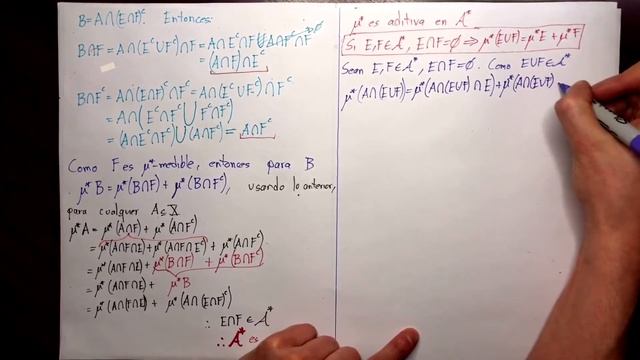 B=A∩(E∩F)ᶜ. Entonces:
B∩F=A∩(Eᶜ∪Fᶜ)∩F=A∩Eᶜ∩F∪A∩Fᶜ∩F ∅
=(A∩F)∩Eᶜ
B∩Fᶜ=A∩(E∩F)ᶜ∩Fᶜ=A∩(Eᶜ∪Fᶜ)∩Fᶜ
=A∩(Eᶜ∩Fᶜ∪Fᶜ∩Fᶜ)
=(A∩Eᶜ∩Fᶜ)∪(A∩Fᶜ)=A∩Fᶜ
Como F es μ*-medible, entonces para B
μ*B=μ*(B∩F)+μ*(B∩Fᶜ), usando lo anterior,
para cualquer A⊆X
μ*A=μ*(A∩F)+μ*(A∩Fᶜ)
=μ*(A∩F∩E)+μ*(A∩F∩Eᶜ)+μ*(A∩Fᶜ)
=μ*(A∩F∩E)+μ*(B∩F)+μ*(B∩Fᶜ)
=μ*(A∩F∩E)+μ*B
=μ*(A∩F∩E)+μ*(A∩(E∩F)ᶜ)
∴ E∩F∈A*
∴ A* es
μ* es aditiva en A*
Si E,F∈A*, E∩F=∅ ⇒ μ*(E∪F)=μ*E+μ*F
Sean E,F∈A*, E∩F=∅. Como E∪F∈A*
μ*(A∩(E∪F))=μ*(A∩(E∪F)∩E)+μ*(A∩(E∪F)